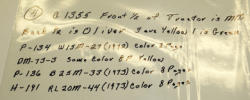 ④ B1355 Front 1/2 of Tractor is MM
Back 1/2 is Oliver 1 ave Yellow 1 is Green
P-134 W15M-29 (1973) Color 8 Pages
DM-73-3 Same Color 8P Yellow
P-136 B25M-33 (1973) Color 8 Pages
H-191 RL20M-44 (1973) Color 8 Pages